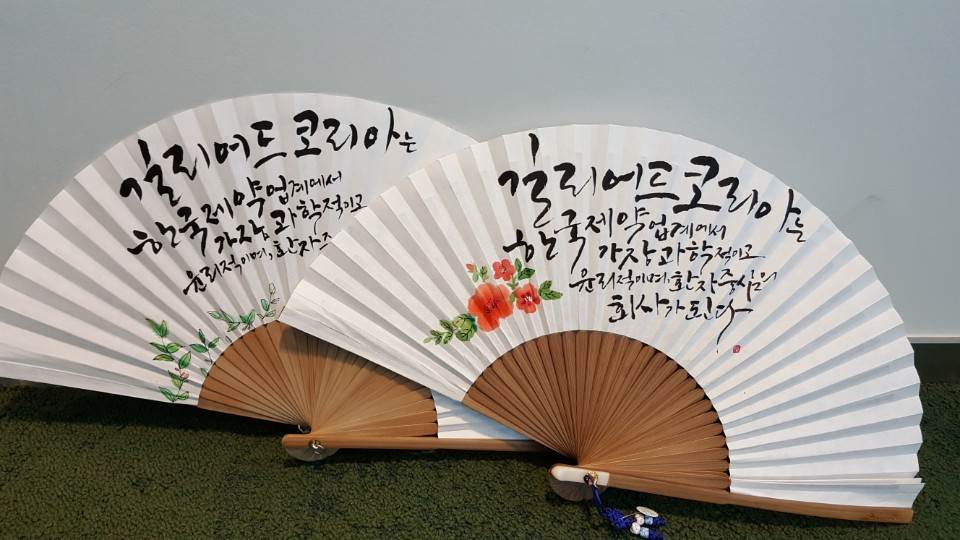 길리어드코리아는
한국제약업계에서
가장과학적이고
윤리적이며, 환자
길리어드코리아는
한국제약업계에서
가장과학적이고
윤리적이며, 환자중심의
회사가된다